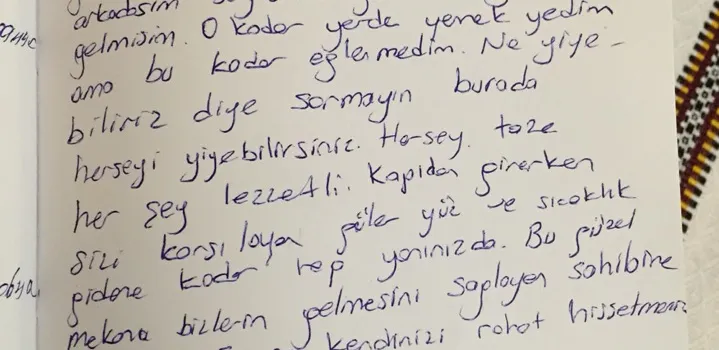 arkadasım
gelmişim. O kadar yerde yemek yedim
ama bu kadar eğlenmedim. Ne yiye-
biliriz diye sormayın burada
herşeyi yiyebilirsiniz. Herşey taze
her şey lezzetli. Kapıdan girerken
sizi karşılayan güler yüz ve sıcaklık
gidene kadar hep yanınızda. Bu güzel
mekana bizlerin gelmesini saplayan sahibine
kendinizi rahat hissetmeniz